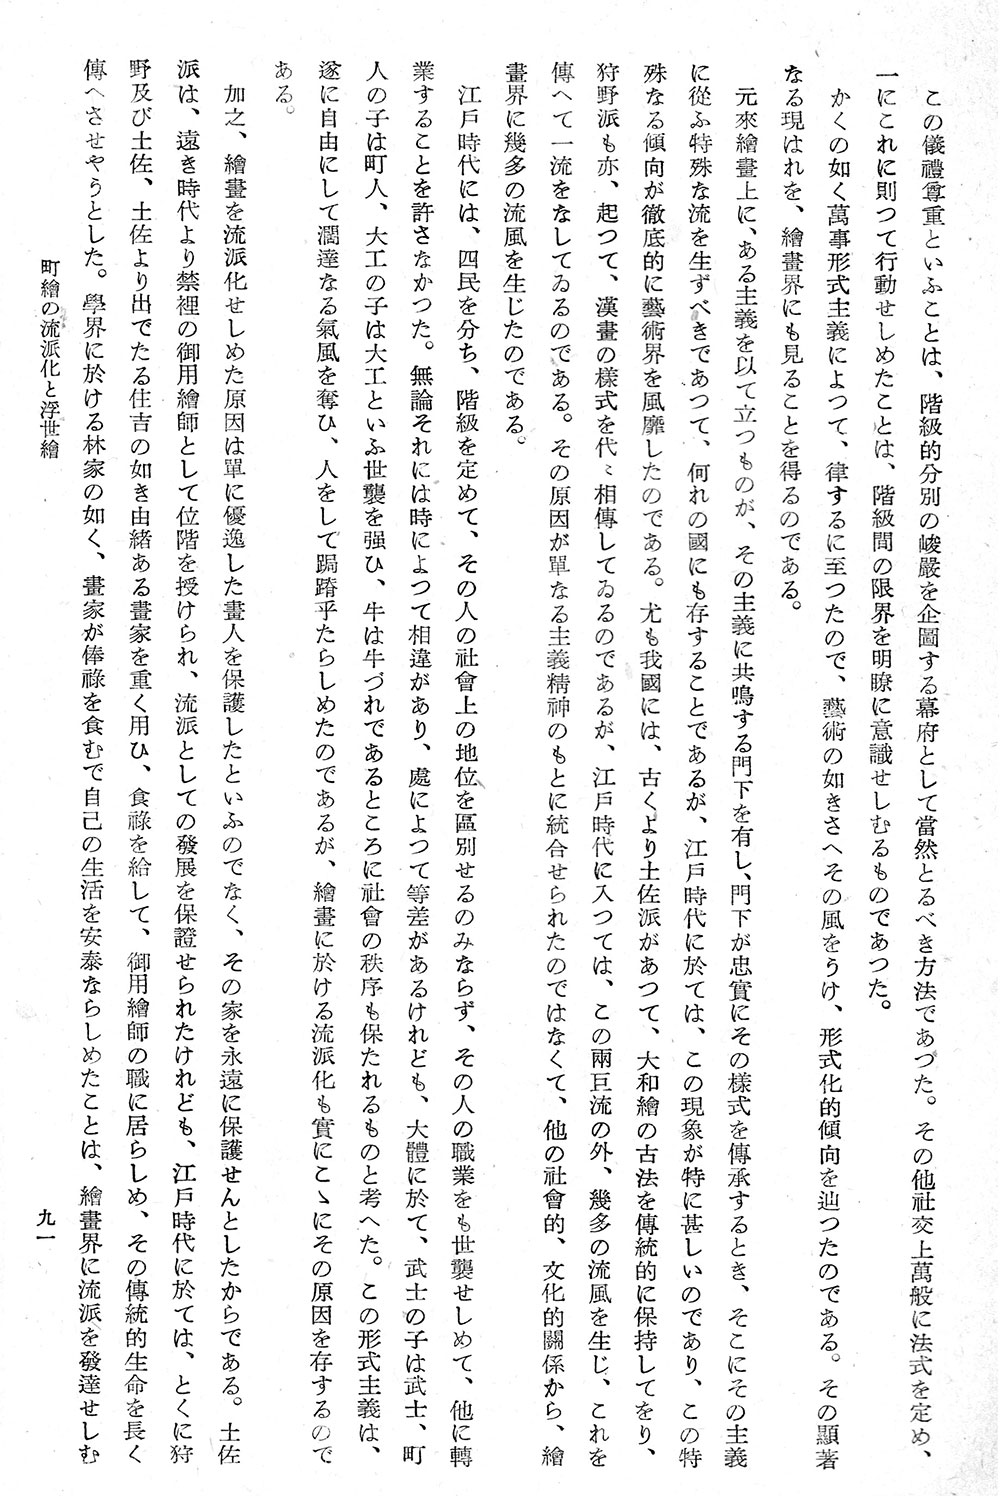 この儀禮尊重といふことは、階級的分別の峻嚴を企圖する幕府として當然とるべき方法であつた。その他社交上萬般に法式を定め、
一にこれに則つて行動せしめたことは、階級間の限界を明瞭に意識せしむるものであつた。
かくの如く萬事形式主義によつて、律するに至つたので、藝術の如きさへその風をうけ、形式化的傾向を辿つたのである。その顯著
なる現はれを、繪畫界にも見ることを得るのである。
元來繪畫上に、ある主義を以て立つものが、その主義に共鳴する門下を有し、門下が忠實にその樣式を傳承するとき、そこにその主義
に從ふ特殊な流を生ずべきであつて、何れの國にも存することであるが、江戸時代に於ては、この現象が特に甚しいのであり、この特
殊なる傾向が徹底的に藝術界を風靡したのである。尤も我國には、古くより土佐派があつて、大和繪の古法を傳統的に保持してをり、
狩野派も亦、起つて、漢畫の樣式を代〻相傳してゐるのであるが、江戸時代に入つては、この兩巨流の外、幾多の流風を生じ、これを
傳へて一流をなしてゐるのである。その原因が單なる主義精神のもとに統合せられたのではなくて、他の社會的、文化的關係から、繪
畫界に幾多の流風を生じたのである。
江戸時代には、四民を分ち、階級を定めて、その人の社會上の地位を區別せるのみならず、その人の職業をも世襲せしめて、他に轉
業することを許さなかつた。無論それには時によつて相違があり、處によつて等差があるけれども、大體に於て、武士の子は武士、町
人の子は町人、大工の子は大工といふ世襲を强ひ、牛は牛づれであるところに社會の秩序も保たれるものと考へた。この形式主義は、
遂に自由にして濶達なる氣風を奪ひ、人をして跼蹐乎たらしめたのであるが、繪畫に於ける流派化も實にこゝにその原因を存するので
ある。
加之、繪畫を流派化せしめた原因は單に優逸した畫人を保護したといふのでなく、その家を永遠に保護せんとしたからである。土佐
派は、遠き時代より禁裡の御用繪師として位階を授けられ、流派としての發展を保證せられたけれども、江戸時代に於ては、とくに狩
野及び土佐、土佐より出でたる住吉の如き由緖ある畫家を重く用ひ、食祿を給して、御用繪師の職に居らしめ、その傳統的生命を長く
傳へさせやうとした。學界に於ける林家の如く、畫家が俸祿を食むで自己の生活を安泰ならしめたことは、繪畫界に流派を發達せしむ
町繪の流派化と浮世繪
九一